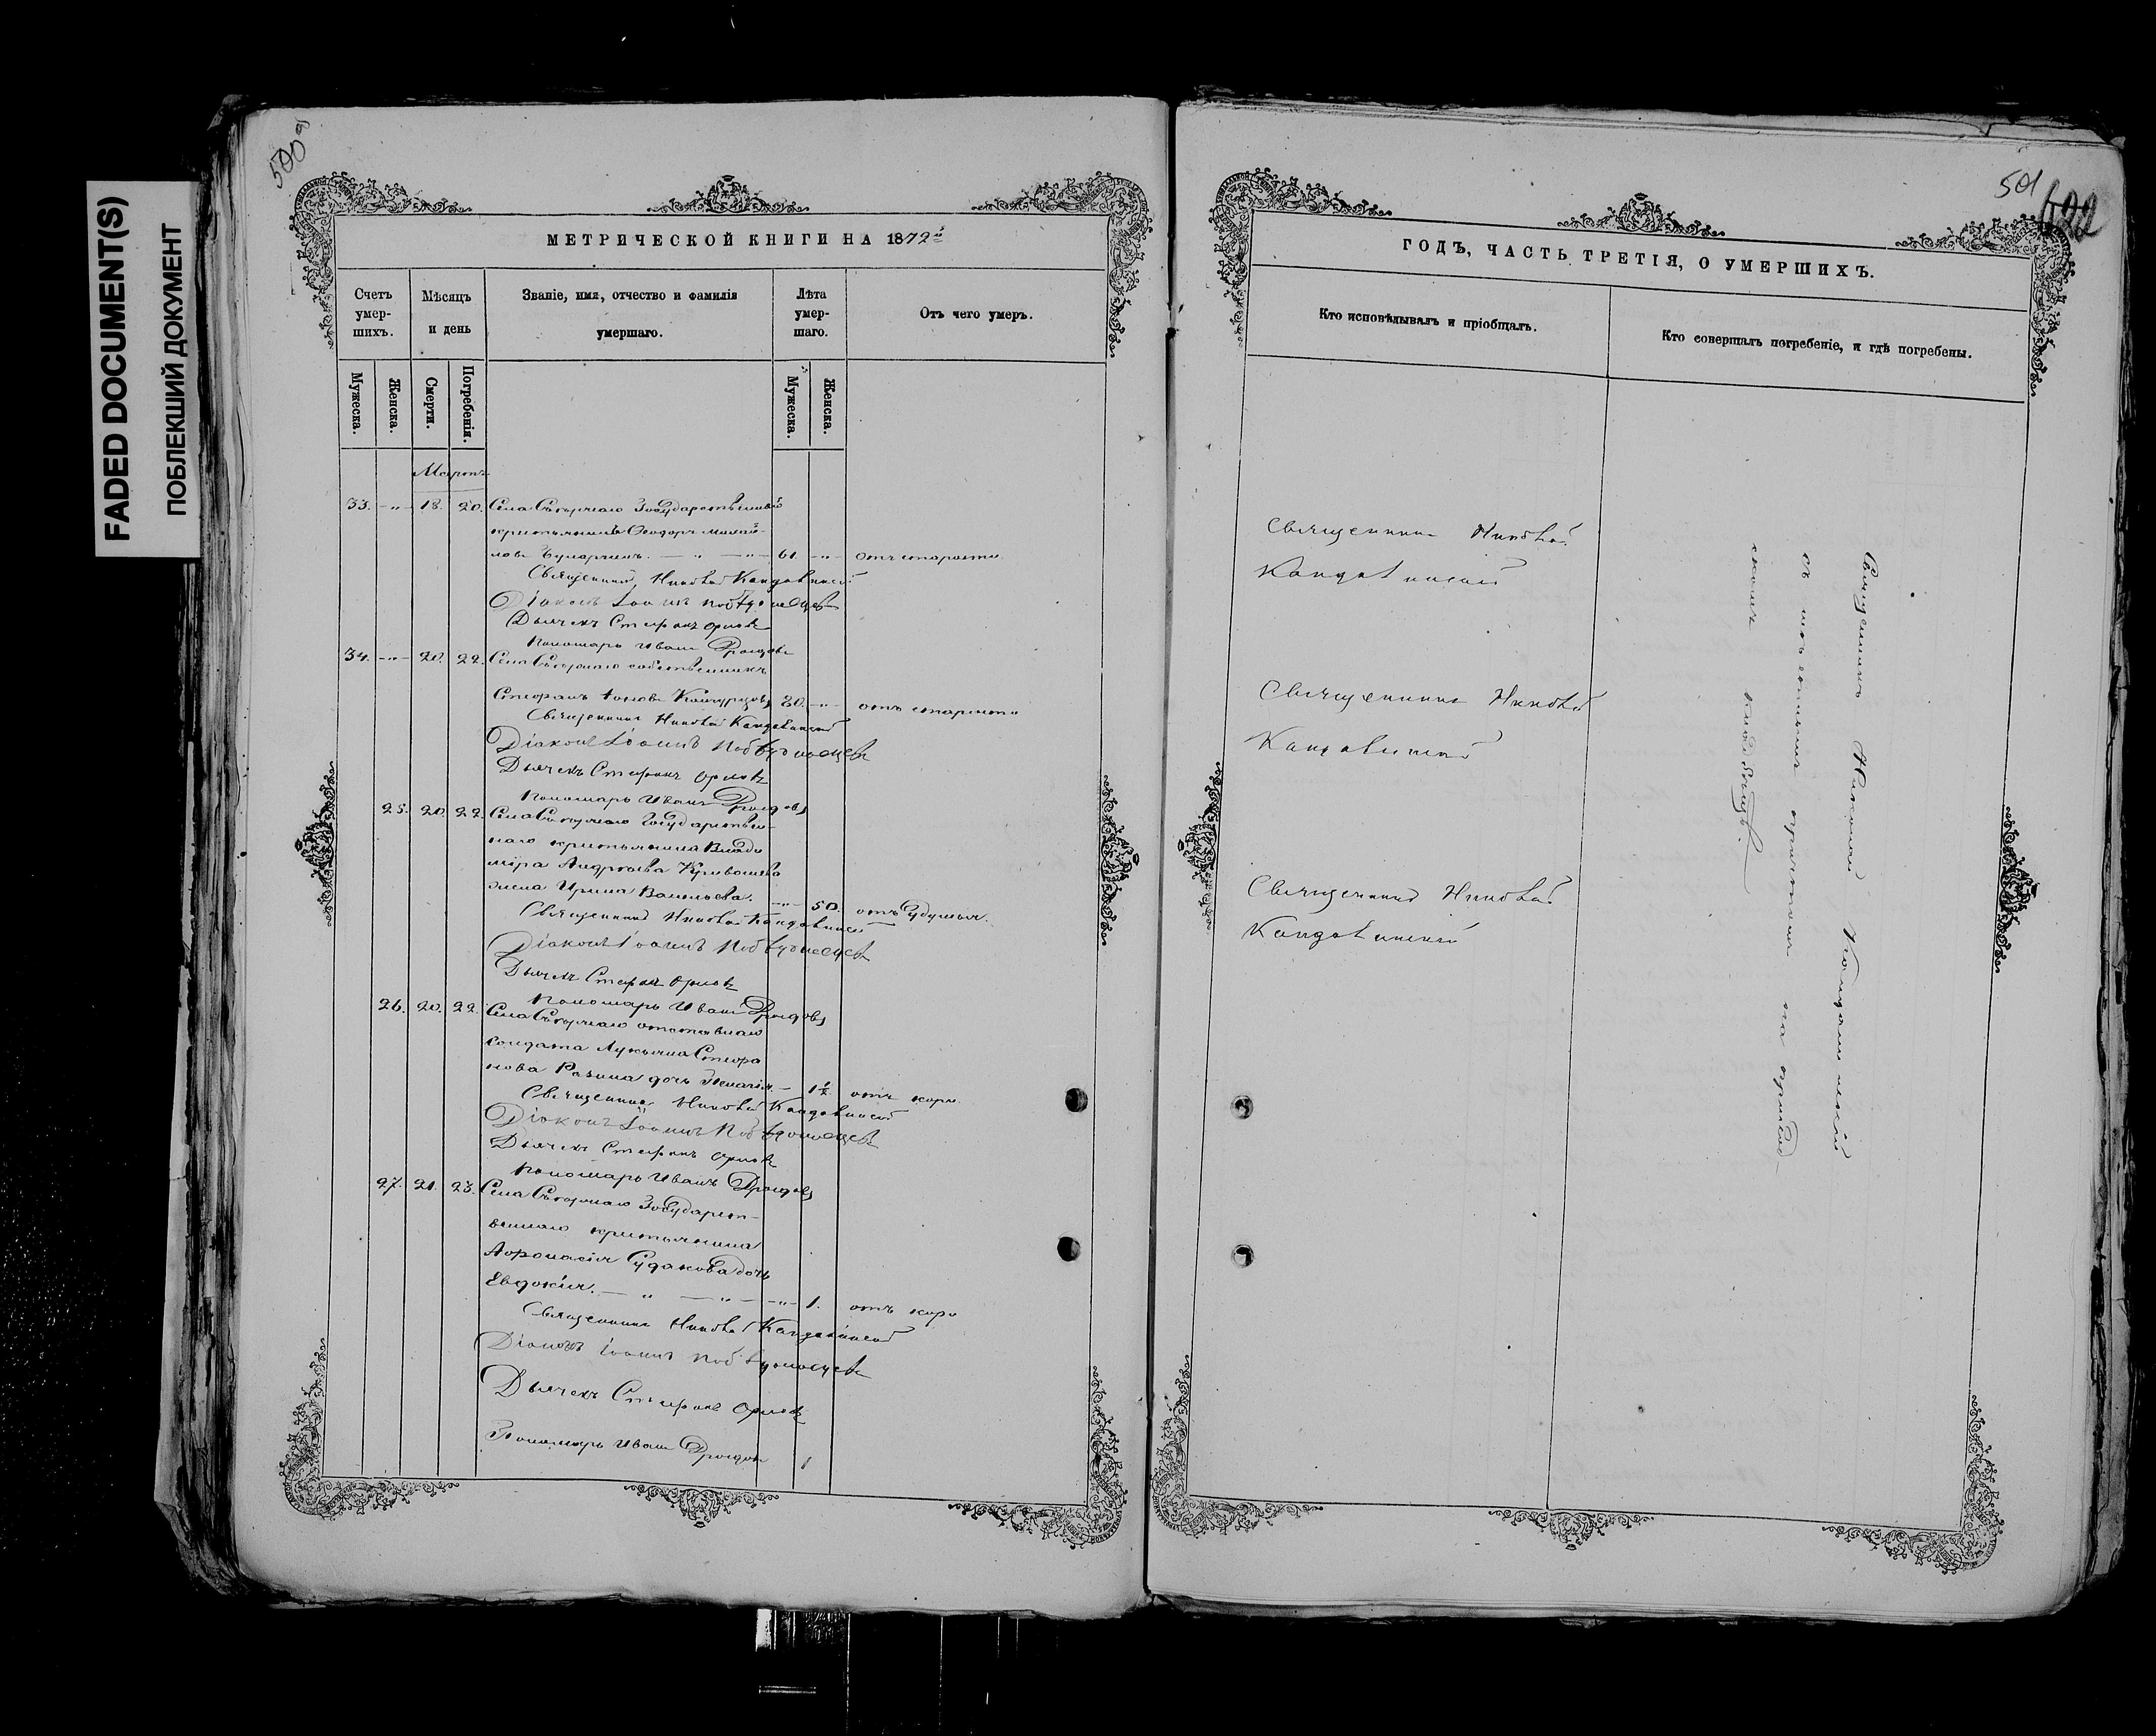 FADED DOCUMENT(S)
ПОБЛЕКШИЙ ДОКУМЕНТ
500
501
622
МЕТРИЧЕСКОЙ КНИГИ НА 1872й
Счетъ умер-шихъ.
Мѣсяцъ и день
Званіе, имя, отчество и фамилія умершаго.
Лѣта умер-шаго.
Отъ чего умеръ.
Мужеска.
Женска.
Смерти.
Погребенія.
Мужеска.
Женска.
Мартъ
33. -"- 18. 20. Села Государственный
крестьянинъ Ѳеодоръ Михай-
ловъ 61. -"- отъ старости
Священникъ Николай
Діаконъ Іоаннъ Побѣдоносцевъ
Дьячекъ Стефанъ Орловъ
Пономарь Иванъ Дроздовъ
34. -"- 20. 22. Села собственникъ
Стефанъ 80. -"- отъ старости
Священникъ Николай
Діаконъ Іоаннъ Побѣдоносцевъ
Дьячекъ Стефанъ Орловъ
Пономарь Иванъ Дроздовъ
25. 20. 22. Села Государствен-
наго крестьянина Влади
міра Андреева Кривошева
жена Ирина Васильева. -"- 50. отъ удушья.
Священникъ Николай
Діаконъ Іоаннъ Побѣдоносцевъ
Дьячекъ Стефанъ Орловъ
Пономарь Иванъ Дроздовъ
26. 20. 22. Села отставнаго
солдата Лукьяна Стефа
нова Разина дочь 1½ отъ кори.
Священникъ Николай
Діаконъ Іоаннъ Побѣдоносцевъ
Дьячекъ Стефанъ Орловъ
Пономарь Иванъ Дроздовъ
27. 21. 23. Села Государст-
веннаго крестьянина
Афонасія Судакова дочь
Евдокія. — " — " — -"- 1. отъ кори
Священникъ Николай
Діаконъ Іоаннъ Побѣдоносцевъ
Дьячекъ Стефанъ Орловъ
Пономарь Иванъ Дроздовъ
ГОДЪ, ЧАСТЬ ТРЕТІЯ, О УМЕРШИХЪ.
Кто исповѣдывалъ и пріобщалъ.
Кто совершалъ погребеніе, и гдѣ погребены.
Священникъ Николай
Священникъ Николай
Священникъ Николай
Священникъ Николай
съ тѣмъ же причтомъ на приход-
скомъ кладбищѣ